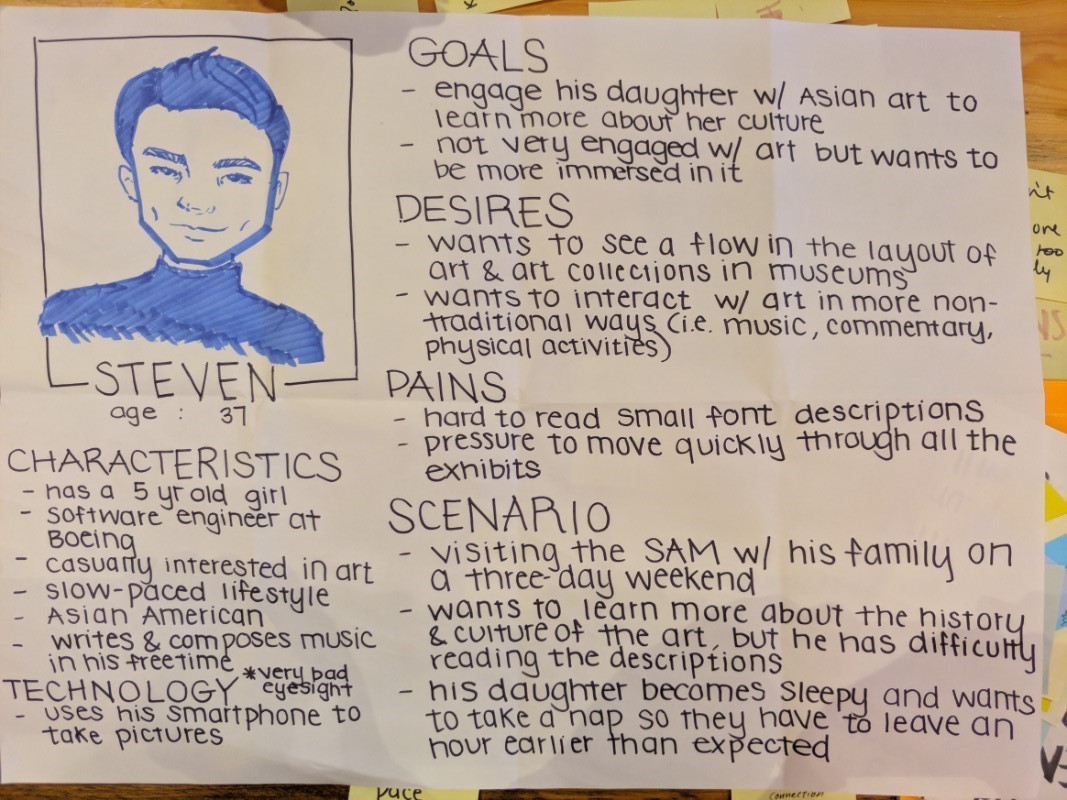 STEVEN
age : 37
CHARACTERISTICS
- has a 5 yr old girl
- software engineer at
Boeing
- casually interested in art
- slow-paced lifestyle
- Asian American
- writes & composes music
in his freetime
*very bad
eyesight
TECHNOLOGY
- uses his smartphone to
take pictures
GOALS
- engage his daughter w/ Asian art to
learn more about her culture
- not very engaged w/ art but wants to
be more immersed in it
DESIRES
- wants to see a flow in the layout of
art & art collections in museums
- wants to interact w/ art in more non-
traditional ways (i.e. music, commentary,
physical activities)
PAINS
- hard to read small font descriptions
- pressure to move quickly through all the
exhibits
SCENARIO
- visiting the SAM w/ his family on
a three-day weekend
- wants to learn more about the history
& culture of the art, but he has difficulty
reading the descriptions
- his daughter becomes sleepy and wants
to take a nap so they have to leave an
hour earlier than expected
pace
connection